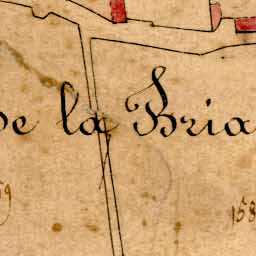 de la Bria
59
158